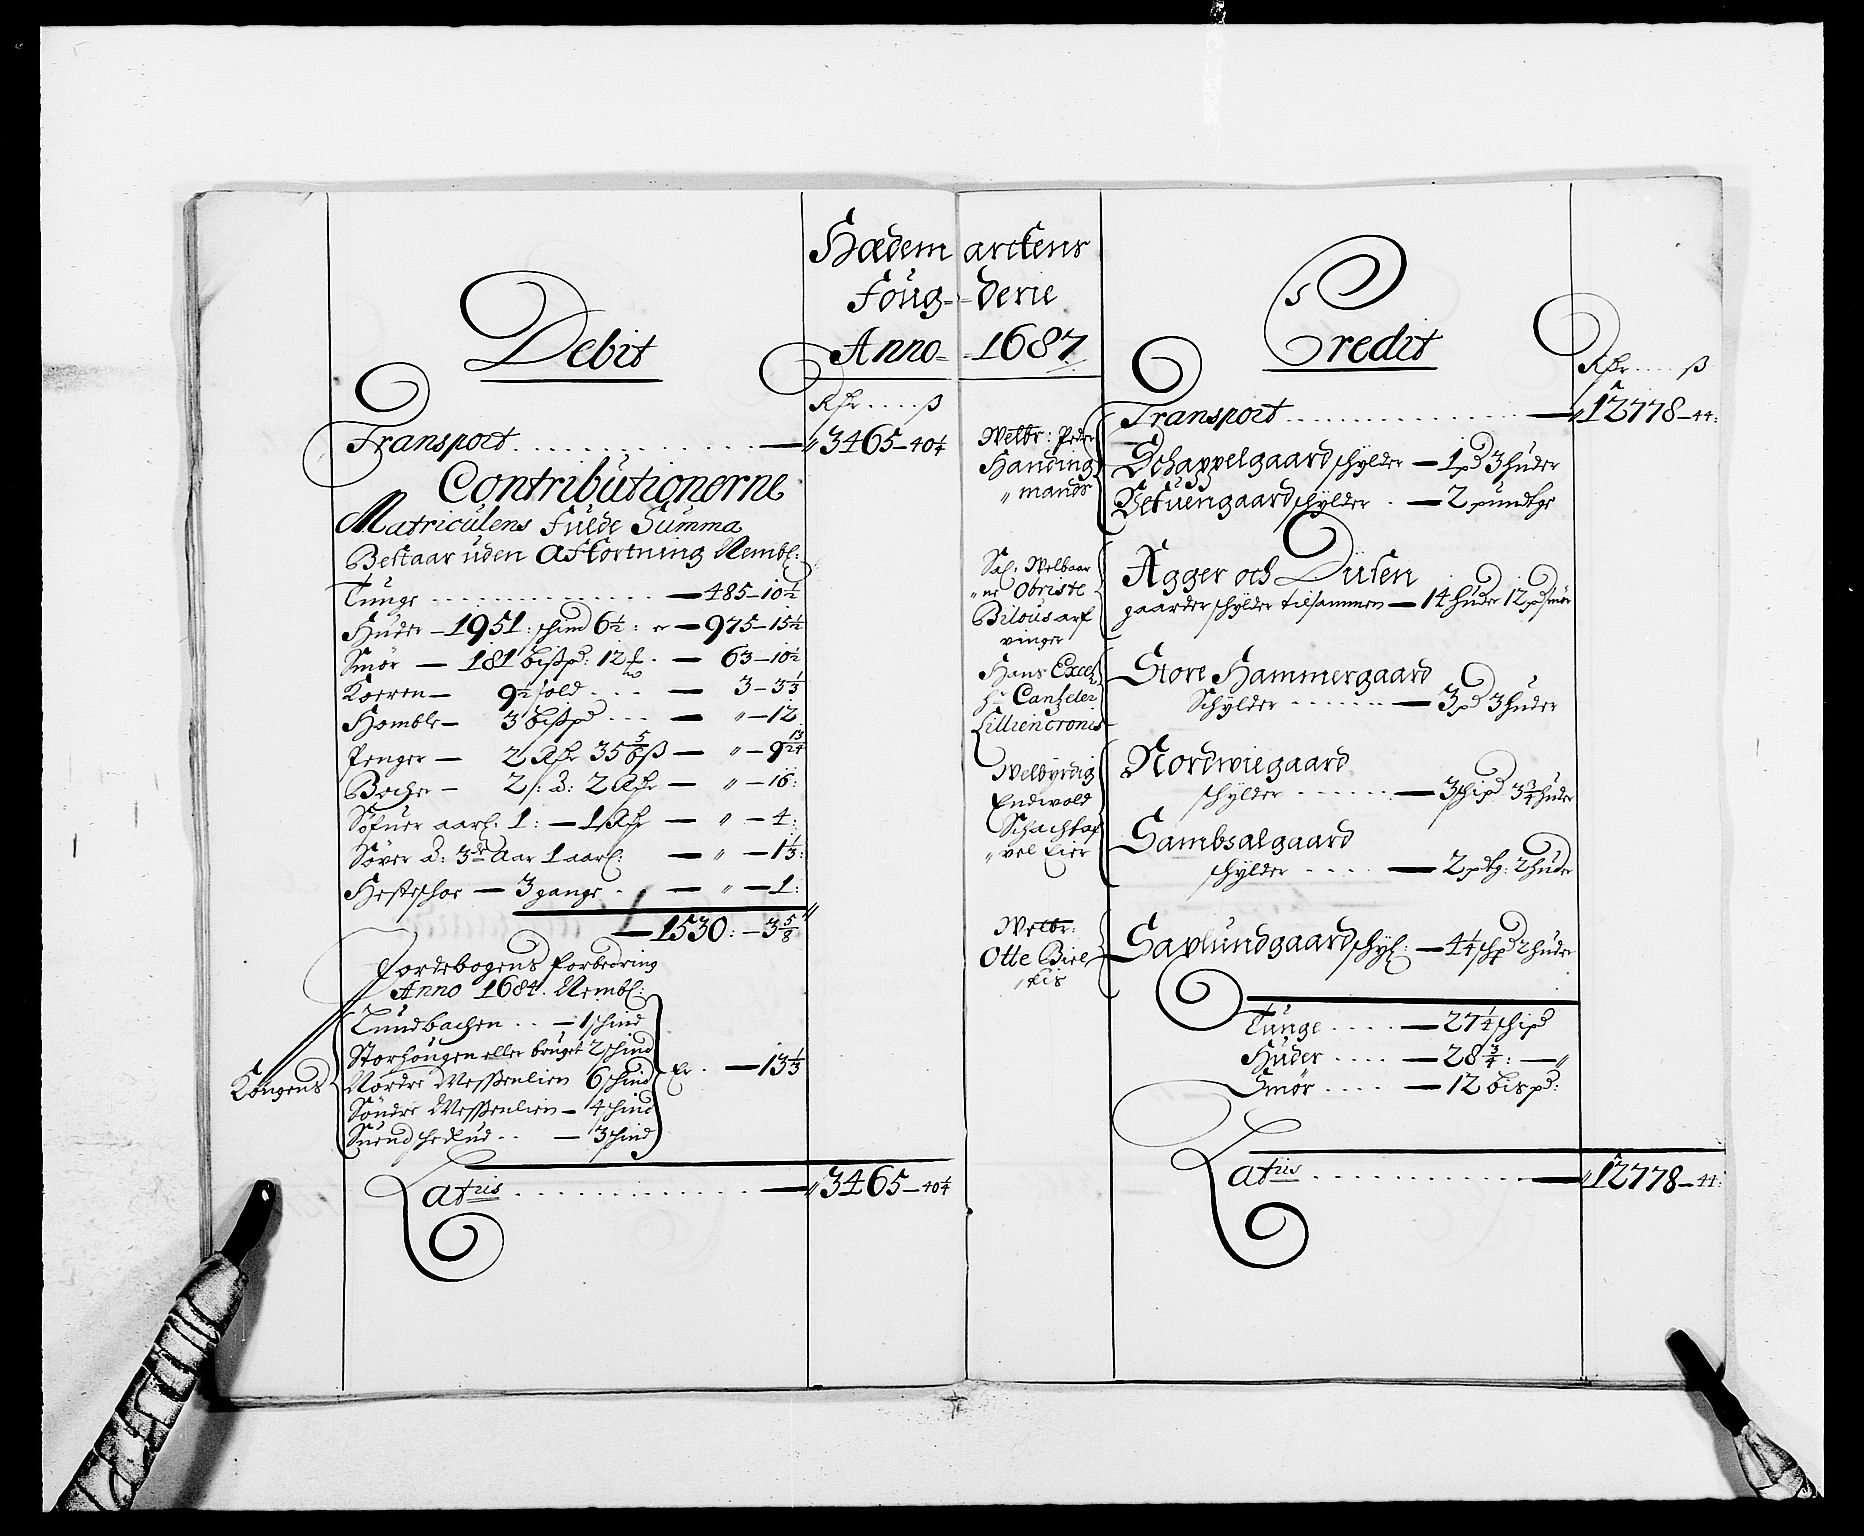 Hædem arckens
Foug- derie
Anno 1687
Debit
Rdr .... ß
Transport 3465-40¼
Contributionerne
Matriculens Fulde Summa
Bestaar uden Afkortning Nembl:
Tunge 485-10½
Huder - 1951: schind 6½: er 975-15½
Smør - 181 bißpd: 12 63-10½
Koeren - 9½ sold 3-3⅓
Homble - 3 bißpd " -12
Penger - 2 Rdr 35⅚ ß " -9 13/24
Bocher - 2 2 Rdr " -16:
Søfuer aarl: 1: - 1 Rdr " -4:
Søver 3de Aar 1 aarl: " -1⅓:
Hesteschoe - 3 gange " -1:
1530:-3⅝
Jordebogens Forbedring
Anno 1684. Nembl:
Kongens
Lundbachen - 1 schind
Storhougen eller bruget 2 schind
Nordre Messenlien 6 schind
Søndre Messenlien - 4 schind
Suend - 3 schind
Er - 13⅓
Latus 3465-40¼
Credit
Rdr .... ß
Transport 12778-44:
Welbr: Peder
Handing
"mands
Schappelgaard schylder - 1 pd 3 huder
Tefuengaard schylder - 2 pundtge
Sal: Welbaar
"ne Obriste
Bilous arf
vinger
Agger och Dusen
gaarder schylder tilsammen - 14 huder 12 pd smør
Hans Excel
hr Cantzeler
Lilliencronis
Store Hammergaard
Schylder - 3 pd 3 huder
Welbyrdig
Endwold
Schachtaf
"vel Eier
Nordwiegaard
schylder - 3 schipd 3¾ huder
Sambsalgaard
schylder - 2 pdtg: 2 huder
Welbr:
Otte Biel
kis
Savlundgaard schyl: - 4¼ schp 2 huder
Tunge - 27¼ schipd
Huder - 28¾: - "
Smør - 12 bispd:
Latus 12778-44: